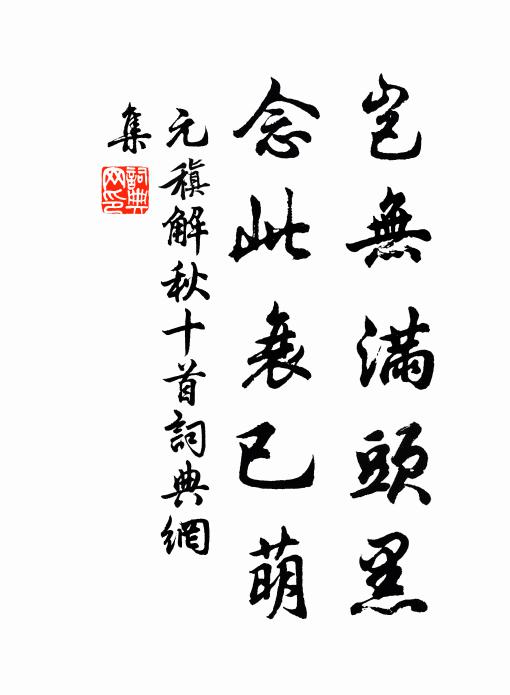 豈無滿頭黑
念此衰已萌
元稹解秋十首詞典網
集
詞典網印